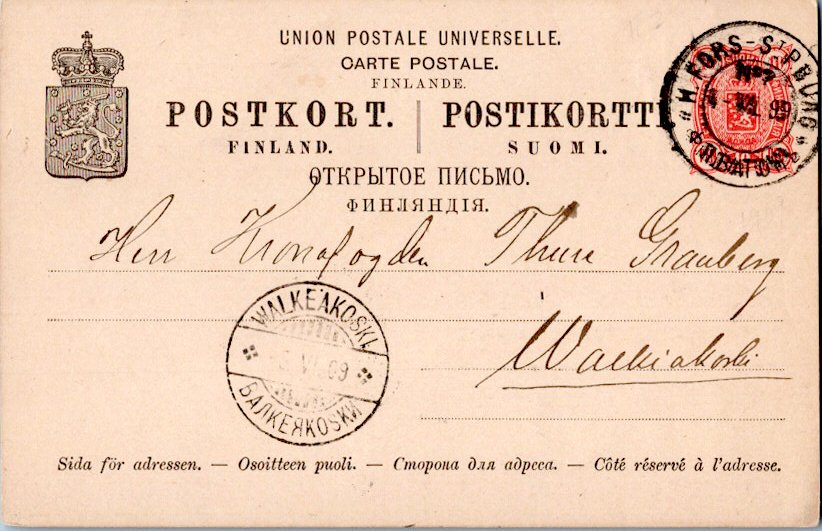 UNION POSTALE UNIVERSELLE.
CARTE POSTALE.
FINLANDE.
POSTKORT. POSTIKORTTI
FINLAND. SUOMI.
ОТКРЫТОЕ ПИСЬМО.
ФИНЛЯНДІЯ.
H:FORS-S:TPBURG
№ 2
Herr Kronofogden Thure Granberg
WALKEAKOSKI
VI 89
ВАЛКЕЯКОSКИ
Walkiakoski
Sida för adressen. — Osoitteen puoli. — Сторона для адреса. — Côté réservé à l'adresse.